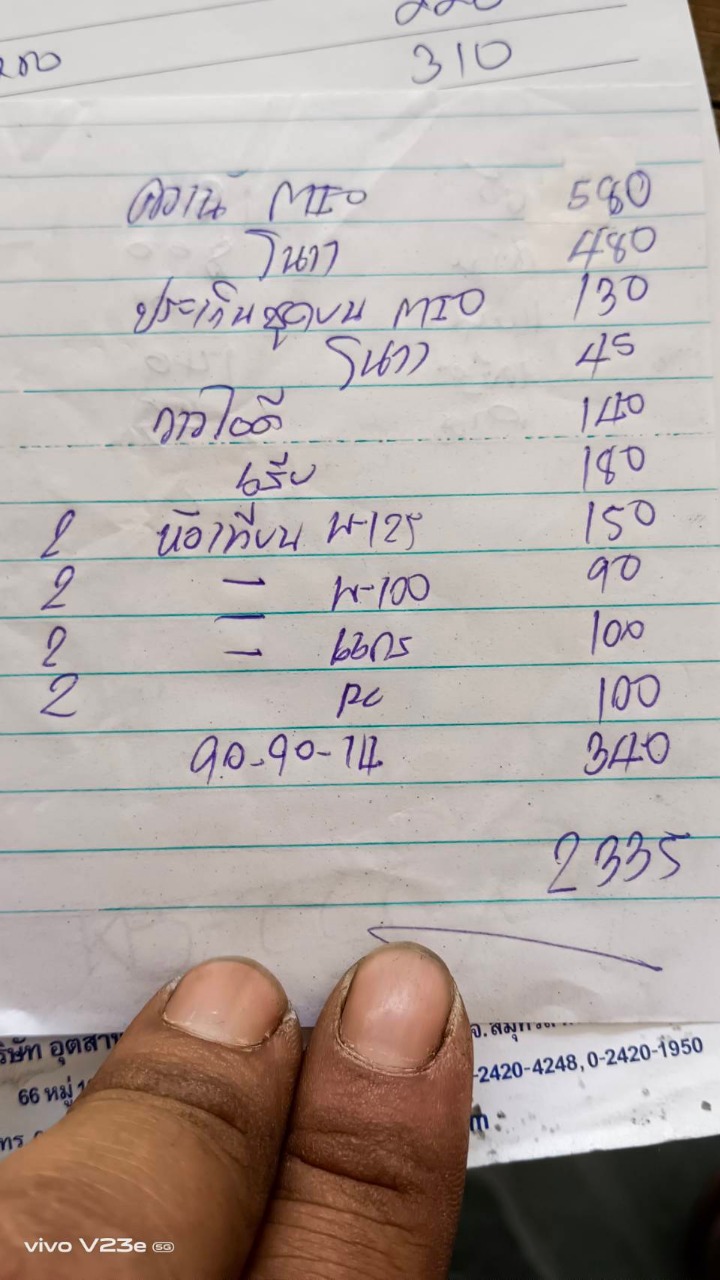 310
คาเน้ MIO 580
โนาว 480
ประเก็นชุดบน MIO 130
โนาว 45
วาวไอดี 140
เสีย 180
2 หัวเทียน W-125 150
2 — W-100 90
2 — 100
2 RC 100
90-90-14 340
2335
ริษัท อุตสาห
จ.สมุทรสา
66 หมู่
-2420-4248, 0-2420-1950
vivo V23e 5G